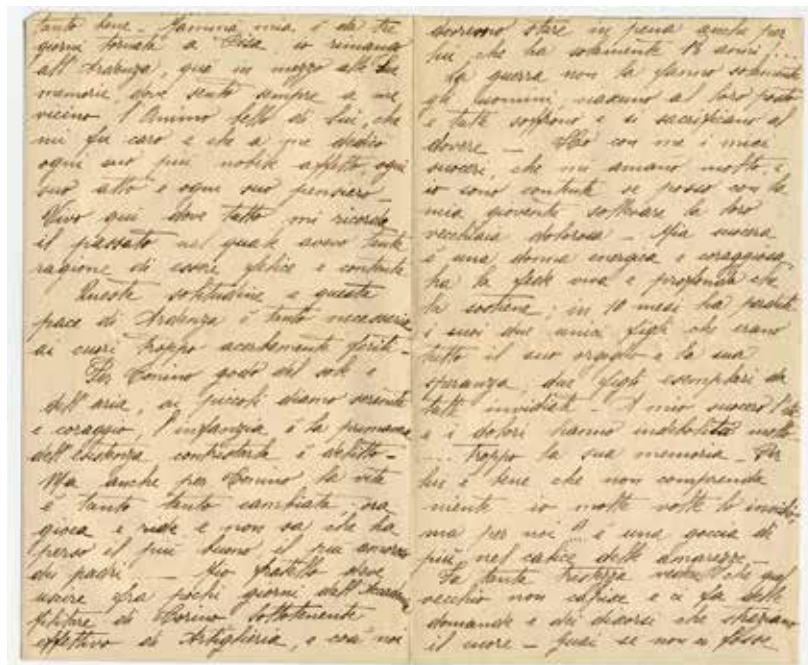 tanto bene – Mamma mia è da tre
giorni tornata a Pisa, io rimango
all'Ardenza, qua in mezzo alle sue
memorie, dove sento sempre a me
vicino l'Animo bello di Lui, che
mi fu caro e che a me dedicò
ogni suo più nobile affetto, ogni
suo atto e ogni suo pensiero.
Vivo qui dove tutto mi ricorda
il passato nel quale avevo tanta
ragione di essere felice e contenta
Questa solitudine e questa
pace di Ardenza è tanto necessaria
ai cuori troppo acerbamente feriti –
Per Tonino godo del sole e
dell'aria, ai piccoli diamo serenità
e coraggio, l'infanzia è la primavera
dell'esistenza contristarla è delitto –
Ma anche per Tonino la vita
è tanto tanto cambiata, ora
gioca e ride e non sa che ha
perso il più buono il più amoroso
dei padri – Mio fratello deve
uscire fra pochi giorni dall'Accademia
Militare di Torino Sottotenente
effettivo di Artiglieria, e così noi
dovremo stare in pena anche per
lui, che ha solamente 18 anni!...
La guerra non la fanno solamente
gli uomini, nessuno al loro posto
e tutti soffrono e si sacrificano al
dovere – Ho con me i miei
suoceri, che mi amano molto, e
io sono contenta se posso con la
mia gioventù sollevare la loro
vecchiaia dolorosa – Mia suocera
è una donna energica e coraggiosa,
ha la fede viva e profonda che
la sostiene; in 10 mesi ha perduti
i suoi due unici figli che erano
tutto il suo orgoglio e la sua
speranza, due figli esemplari da
tutti invidiati – A mio suocero l'età
e i dolori hanno indebolita molto
... troppo la sua memoria – Per
lui è bene che non comprenda
niente io molte volte lo invidio,
ma per noi è una goccia di
più nel calice delle amarezze –
Fa tanta tristezza vedere che quel
vecchio non capisce e ci fa delle
domande e dei discorsi che straziano
il cuore – Guai se non ci fosse